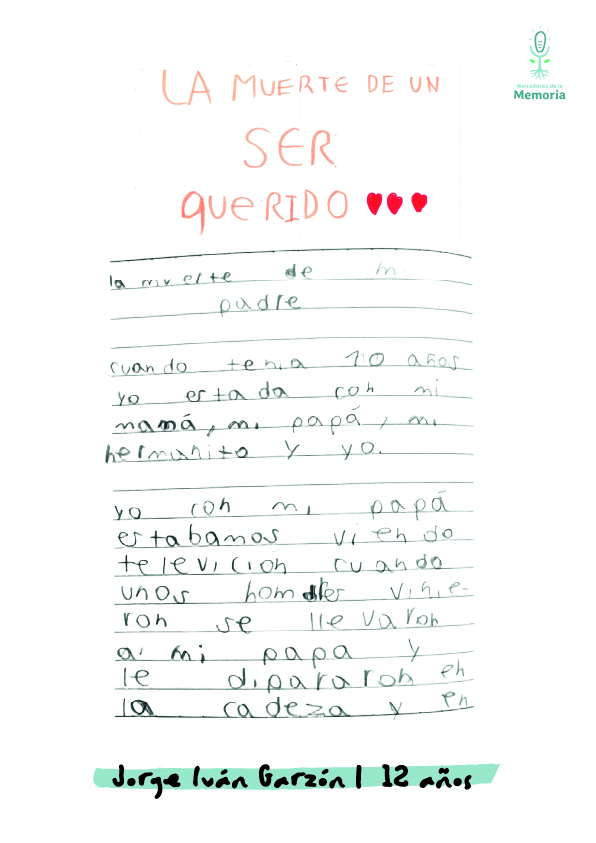 Narradores de la
Memoria
LA MUERTE DE UN
SER
QUERIDO
la muerte de mi
padre
cuando tenia 10 años
yo estada con mi
mamá, mi papá, mi
hermanito y yo.
yo con mi papá
estabamos viendo
televicion cuando
unos homdres vinie-
ron se llevaron
a mi papa y
le dipararon en
la cadeza y en
Jorge Iván Garzón | 12 años